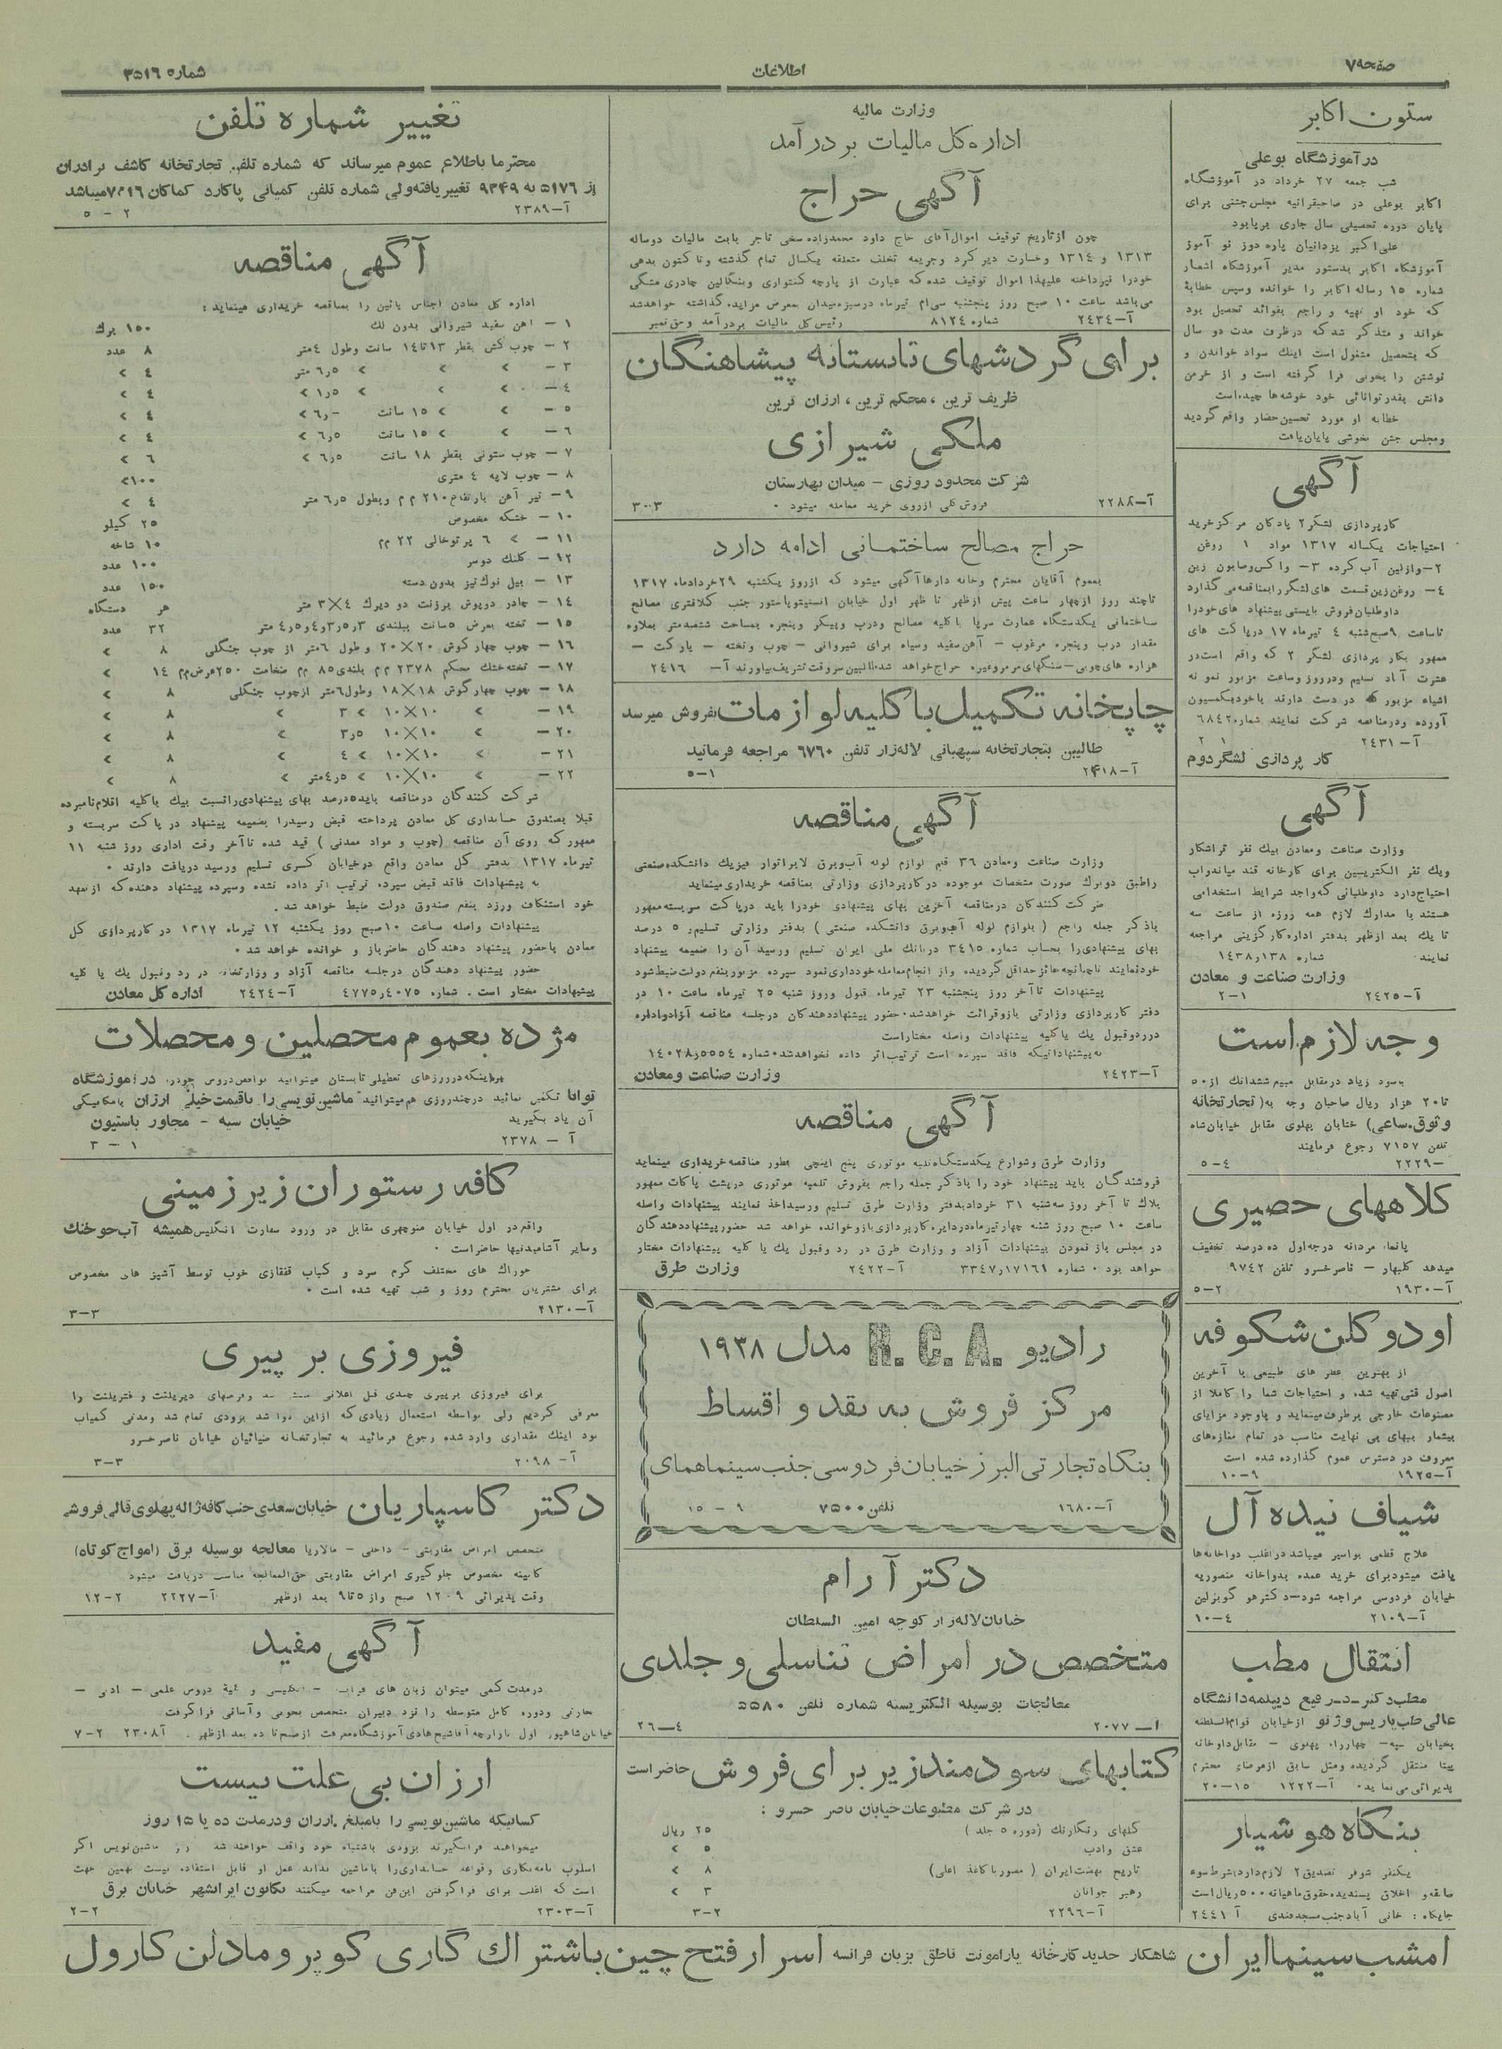 صفحه ۷
اطلاعات
شماره ۳۵۱۶
ستون اکابر
در آموزشگاه بوعلی
شب جمعه ۲۷ خرداد در آموزشگاه
اکابر بوعلی در صاحبقرانیه مجلس جشنی برای
پایان دوره تحصیلی سال جاری برپا بود
علی اکبر یزدانیان پاره دوز نو آموز
آموزشگاه اکابر بدستور مدیر آموزشگاه اشعار
شماره ۱۵ رساله اکابر را خوانده وسپس خطابهٔ
که خود او تهیه و راجع بفوائد تحصیل بود
خواند و متذکر شد که درظرف مدت دو سال
که بتحصیل مشغول است اینك سواد خواندن و
نوشتن را بخوبی فرا گرفته است و از خرمن
دانش بقدر توانائی خود خوشه ها چیده است
خطابه او مورد تحسین حضار واقع گردید
ومجلس جشن بخوشی پایان یافت
آگهی
کارپردازی لشگر ۲ پادکان مرکز خرید
احتیاجات یکساله ۱۳۱۷ مواد ۱ روغن
۲- وازلین آب کرده ۳- واکس وصابون زین
۴- روغن زین قسمت های لشگر را بمناقصه می گذارد
داوطلبان فروش بایستی پیشنهاد های خود را
تا ساعت ۹ صبح شنبه ۴ تیر ماه ۱۷ در پاکت های
ممهور بکار پردازی لشگر ۲ که واقع است در
عشرت آباد تسلیم ودرروز وساعت مزبور نمونه
اشیاء مزبور که در دست دارند با خود بکمسیون
آورده ودر مناقصه شرکت نمایند شماره ۶۸۴۲
آ- ۲۴۳۱ ۱ ۲
کار پردازی لشگر دوم
آگهی
وزارت صناعت ومعادن بیك نفر تراشکار
ویك نفر الکتریسین برای کارخانه قند میاندواب
احتیاج دارد داوطلبانی که واجد شرایط استخدامی
هستند با مدارك لازم همه روزه از ساعت سه
تا یك بعد ازظهر بدفتر اداره کارگزینی مراجعه
نمایند شماره ۱۴۳۸٫۱۳۸
وزارت صناعت و معادن
آ-۲۴۲۵ ۱-۲
وجه لازم است
بسود زیاد در مقابل مبیع ششدانك از ۵۰
تا ۲۰ هزار ریال صاحبان وجه به (تجارتخانه
وثوق ساعی) خیابان پهلوی مقابل خیابان شاه
تلفن ۷۱۵۷ رجوع فرمایند
-۲۲۲۹ ۴-۵
کلاههای حصیری
پانما، مردانه درجه اول ده درصد تخفیف
میدهد کلبهار - ناصرخسرو تلفن ۹۷۴۲
آ-۱۹۳۰ ۲-۵
اودوکلن شکوفه
از بهترین عطر های طبیعی با آخرین
اصول فنی تهیه شده و احتیاجات شما را کاملا از
مصنوعات خارجی برطرف مینماید و باوجود مزایای
بیشمار ببهای بی نهایت مناسب در تمام مغازه های
معروف در دسترس عموم گذارده شده است
آ-۱۹۲۵ ۹-۱۰
شیاف نیده آل
علاج قطعی بواسیر میباشد در اغلب دواخانه ها
یافت میشود برای خرید عمده بدواخانه منصوریه
خیابان فردوسی مراجعه شود - دکتر هو گو بزلین
آ-۲۱۰۹ ۴-۱۰
انتقال مطب
مطب دکتر - د - رفیع دیپلمه دانشگاه
عالی طب پاریس و ژنو از خیابان قوام السلطنه
بخیابان سپه - چهارراه پهلوی - مقابل داوخانه
بیتا منتقل گردیده ومثل سابق از مرضاء محترم
پذیرائی می نماید. آ-۱۲۲۲ ۱۵-۲۰
بنگاه هوشیار
یکنفر شوفر تصدیق ۲ لازم دارد بشرط سوء
سابقه و اخلاق پسندیده حقوق ماهیانه ۵۰۰ ریال است
جایگاه: خانی آباد جنب مسجد قندی آ ۲۴۴۱
وزارت مالیه
اداره کل مالیات بر در آمد
آگهی حراج
چون از تاریخ توقیف اموال آقای حاج داود محمدزاده سخی تاجر بابت مالیات دوساله
۱۳۱۳ و ۱۳۱۴ وخسارت دیر کرد وجریمه تخلف متعلقه یکسال تمام گذشته وتا کنون بدهی
خودرا نپرداخته علیهذا اموال توقیف شده که عبارت از پارچه کنتواری وبنگالین چادری مشگی
می باشد ساعت ۱۰ صبح روز پنجشنبه سی ام تیرماه در سبزه میدان بمعرض مزایده گذاشته خواهد شد
آ-۲۴۳۴ شماره ۸۱۲۴ رئیس کل مالیات بر در آمد وحق تمبر
برای گردشهای تابستانه پیشاهنگان
ظریف ترین ، محکم ترین ، ارزان ترین
ملکی شیرازی
شرکت محدود روزی - میدان بهارستان
آ-۲۲۸۸ فروش کلی ازروی خرید معامله میشود. ۳-۳۰
حراج مصالح ساختمانی ادامه دارد
بعموم آقایان محترم وخانه دارها آگهی میشود که ازروز یکشنبه ۲۹ خرداد ماه ۱۳۱۷
تا چند روز از چهار ساعت پیش ازظهر تا ظهر اول خیابان انستیتو پاستور جنب کلانتری مصالح
ساختمانی یکدستگاه عمارت سرپا با کلیه مصالح ودرب وپیکر وپنجره بمساحت ششصد متر بعلاوه
مقدار درب پنجره مرغوب - آهن سفید وسیاه برای شیروانی - چوب وتخته - پارکت -
هزاره های چوبی - سنگهای مرمر وغیره حراج خواهد شد طالبین سر وقت تشریف بیاورند آ- ۲۴۱۶
چاپخانه تکمیل با کلیه لوازمات بفروش میرسد
طالبین بتجارتخانه سپهبانی لاله زار تلفن ۶۷۶۰ مراجعه فرمائید
آ-۲۴۱۸ ۱-۵
آگهی مناقصه
وزارت صناعت ومعادن ۳۶ قلم لوازم لوله آب وبرق لابراتوار فیزیك دانشکده صنعتی
را طبق دوبرك صورت مشخصات موجوده در کارپردازی وزارتی بمناقصه خریداری مینماید
شرکت کنندگان در مناقصه آخرین بهای پیشنهادی خودرا باید در پاکت سربسته ممهور
باذکر جمله راجع ( بلوازم لوله آب وبرق دانشکده صنعتی ) بدفتر وزارتی تسلیم، ۵ درصد
بهای پیشنهادی را بحساب شماره ۳۴۱۵ در بانك ملی ایران تسلیم ورسید آن را ضمیمه پیشنهاد
خود نمایند تا چنانچه حائز حداقل گردیده واز انجام معامله خودداری نمود سپرده مزبور بنفع دولت ضبط شود
پیشنهادات تا آخر روز پنجشنبه ۲۳ تیرماه قبول وروز شنبه ۲۵ تیرماه ساعت ۱۰ در
دفتر کارپردازی وزارتی باز وقرائت خواهد شد. حضور پیشنهاد دهندگان در جلسه مناقصه آزاد واداره
در رد وقبول یك یا کلیه پیشنهادات واصله مختار است
به پیشنهاداتیکه فاقد سپرده است ترتیب اثر داده نخواهد شد. شماره ۱۴۰۲۸٫۵۵۵۴
آ-۲۴۲۳ وزارت صناعت ومعادن
آگهی مناقصه
وزارت طرق وشوارع یکدستگاه تلمبه موتوری پنج اینچی بطور مناقصه خریداری مینماید
فروشندگان باید پیشنهاد خود را باذکر جمله راجع بفروش تلمبه موتوری در پشت پاکات ممهور
بلاك تا آخر روز سه شنبه ۳۱ خرداد بدفتر وزارت طرق تسلیم ورسید اخذ نمایند پیشنهادات واصله
ساعت ۱۰ صبح روز شنبه چهار تیرماه در دایره کارپردازی باز وخوانده خواهد شد حضور پیشنهاد دهندگان
در مجلس باز نمودن پیشنهادات آزاد و وزارت طرق در رد وقبول یك یا کلیه پیشنهادات مختار
خواهد بود. شماره ۳۳۴۷٫۱۷۱۶۹ آ-۲۴۲۲ وزارت طرق
رادیو R. C. A. مدل ۱۹۳۸
مرکز فروش به نقد و اقساط
بنگاه تجارتی البرز خیابان فردوسی جنب سینماهمای
آ-۱۶۸۰ تلفن ۷۵۰۰ ۹ - ۱۵
دکتر آرام
خیابان لاله زار کوچه امین السلطان
متخصص در امراض تناسلی و جلدی
معالجات بوسیله الکتریسته شماره تلفن ۵۵۸۰
ا- ۲۰۷۷ ۴-۲۶
کتابهای سودمند زیر برای فروش حاضر است
در شرکت مطبوعات خیابان ناصر خسرو :
گلهای رنگارنك (دوره ۵ جلد ) ۲۵ ریال
عشق وادب ۵ >
تاریخ نهضت ایران ( مصور با کاغذ اعلی) ۸ >
رهبر جوانان ۳ >
آ-۲۲۹۶ ۲-۳
تغییر شماره تلفن
محترما باطلاع عموم میرساند که شماره تلفن تجارتخانه کاشف برادران
از ۵۱۷۶ به ۹۳۴۹ تغییر یافته ولی شماره تلفن کمپانی پاکارد کماکان میباشد
آ-۲۳۸۹ ۲ - ۵
آگهی مناقصه
اداره کل معادن اجناس پائین را بمناقصه خریداری مینماید :
۱ - آهن سفید شیروانی بدون لك ۱۵۰ برك
۲ - چوب کش بقطر ۱۳ تا ۱۴ سانت وطول ۴ متر ۸ عدد
۳ - > > > ۶٫۵ متر ۴ >
۴ - > > ۱٫۵ > ۴ >
۵ - > > ۱۵ سانت ۶٫- > ۴ >
۶ - > > ۱۵ سانت ۶٫۵ > ۴ >
۷ - چوب ستونی بقطر ۱۸ سانت ۶٫۵ > ۶ >
۸ - چوب لاپه ۴ متری ۱۰۰ >
۹ - تیر آهن بارتفاع ۲۱۰ م م وبطول ۶٫۵ متر ۴ >
۱۰ - خشکه مخصوص ۲۵ کیلو
۱۱ - > ۶ پر توخالی ۲۲ م م ۱۰ شاخه
۱۲ - کلنك دوسر ۱۰۰ عدد
۱۳ - بیل نوك تیز بدون دسته ۱۵۰ عدد
۱۴ - چادر درپوش برزنت دو دیرك ۴×۳ متر هر دستگاه
۱۵ - تخته بعرض ۵ سانت ببلندی ۳ و ۳٫۵ و ۴ و ۴٫۵ متر ۳۲ عدد
۱۶ - چوب چهار گوش ۲۰×۲۰ وطول ۶ متر از چوب جنگلی ۸ >
۱۷ - تخته خشك محکم ۲۳۷۸ م م بلندی ۸۵ م م ضخامت ۲۵۰ عرض م م ۱۴ >
۱۸ - چوب چهار گوش ۱۸×۱۸ وطول ۶ متر از چوب جنگلی ۸ >
۱۹ - > ۱۰×۱۰ > ۳ > ۸ >
۲۰ - > ۱۰×۱۰ ۳٫۵ > ۸ >
۲۱ - > ۱۰×۱۰ > ۴ > ۸ >
۲۲ - > ۱۰×۱۰ > ۴٫۵ متر > ۸ >
شرکت کنندگان در مناقصه باید ۵ درصد بهای پیشنهادی را نسبت بیك یا کلیه اقلام نامبرده
قبلا بصندوق حسابداری کل معادن پرداخته قبض رسید را بضمیمه پیشنهاد در پاکت سربسته و
ممهور که روی آن مناقصه (چوب و مواد معدنی ) قید شده تا آخر وقت اداری روز شنبه ۱۱
تیر ماه ۱۳۱۷ بدفتر کل معادن واقع در خیابان کسری تسلیم ورسید دریافت دارند .
به پیشنهادات فاقد قبض سپرده ترتیب اثر داده نشده وسپرده پیشنهاد دهنده که از تعهد
خود استنکاف ورزد بنفع صندوق دولت ضبط خواهد شد .
پیشنهادات واصله ساعت ۱۰ صبح روز یکشنبه ۱۲ تیر ماه ۱۳۱۷ در کارپردازی کل
معادن باحضور پیشنهاد دهندگان حاضر باز و خوانده خواهد شد .
حضور پیشنهاد دهندگان در جلسه مناقصه آزاد و وزارتخانه در رد وقبول یك یا کلیه
پیشنهادات مختار است . شماره ۴۷۷۵٫۴۰۷۵ آ-۲۴۲۴ اداره کل معادن
مژده بعموم محصلین و محصلات
برای اینکه در روزهای تعطیلی تابستان میتوانید نواقص دروس خود را در آموزشگاه
توانا تکمیل نمائید در چند روزی هم میتوانید ماشین نویسی را باقیمت خیلی ارزان بامکانیکی
آن یاد بگیرید خیابان سپه - مجاور باستیون
آ - ۲۳۷۸ ۱ - ۳
کافه رستوران زیرزمینی
واقع در اول خیابان منوچهری مقابل در ورود سفارت انگلیس همیشه آب جو خنك
وسایر آشامیدنیها حاضر است .
خوراك های مختلف گرم سرد و کباب قفقازی خوب توسط آشپز های مخصوص
برای مشتریان محترم روز و شب تهیه شده است .
آ-۲۱۳۰ ۳-۳
فیروزی بر پیری
برای فیروزی بر پیری چندی قبل اعلانی وقرصهای دیرپلنت و فترپلنت را
معرفی کردیم ولی بواسطه استعمال زیادی که ازاین دوا شد بزودی تمام شد ومدتی کمیاب
بود اینك مقداری وارد شده رجوع فرمائید به تجارتخانه ضیائیان خیابان ناصرخسرو
آ- ۲۰۹۸ ۳-۳
دکتر کاسپاریان خیابان سعدی جنب کافه ژاله پهلوی قالی فروشی
متخصص امراض مقاربتی - داخلی - مالاریا معالجه بوسیله برق (امواج کوتاه)
کابینه مخصوص جلوگیری امراض مقاربتی حق المعالجه مناسب دریافت میشود
وقت پذیرائی ۹-۱۲ صبح واز ۵ تا ۹ بعد ازظهر آ-۲۲۲۷ ۲-۱۲
آگهی مفید
درمدت کمی میتوان زبان های فرانسه - انگلیسی و کلیهٔ دروس علمی - ادبی -
تجارتی ودوره کامل متوسطه را نزد دبیران متخصص بخوبی وآسانی فرا گرفت
خیابان شاهپور اول بازارچه آقا شیخ هادی آموزشگاه معرفت از صبح تا ده بعد ازظهر . آ ۲۳۰۸ ۲-۷
ارزان بی علت نیست
کسانیکه ماشین نویسی را بامبلغ ارزان ودرمدت ده یا ۱۵ روز
میخواهند فرا گیرند بزودی باشتباه خود واقف خواهند شد ماشین نویس اگر
اسلوب نامه نگاری وقواعد حسابداری را با ماشین نداند عمل او قابل استفاده نیست بهمین جهت
است که اغلب برای فرا گرفتن این فن مراجعه میکنند بکانون ایرانشهر خیابان برق
آ-۲۳۰۳ ۲-۲
امشب سینما ایران شاهکار جدید کارخانه پارامونت ناطق بزبان فرانسه اسرار فتح چین باشتراك گاری کوپر و مادلن کارول